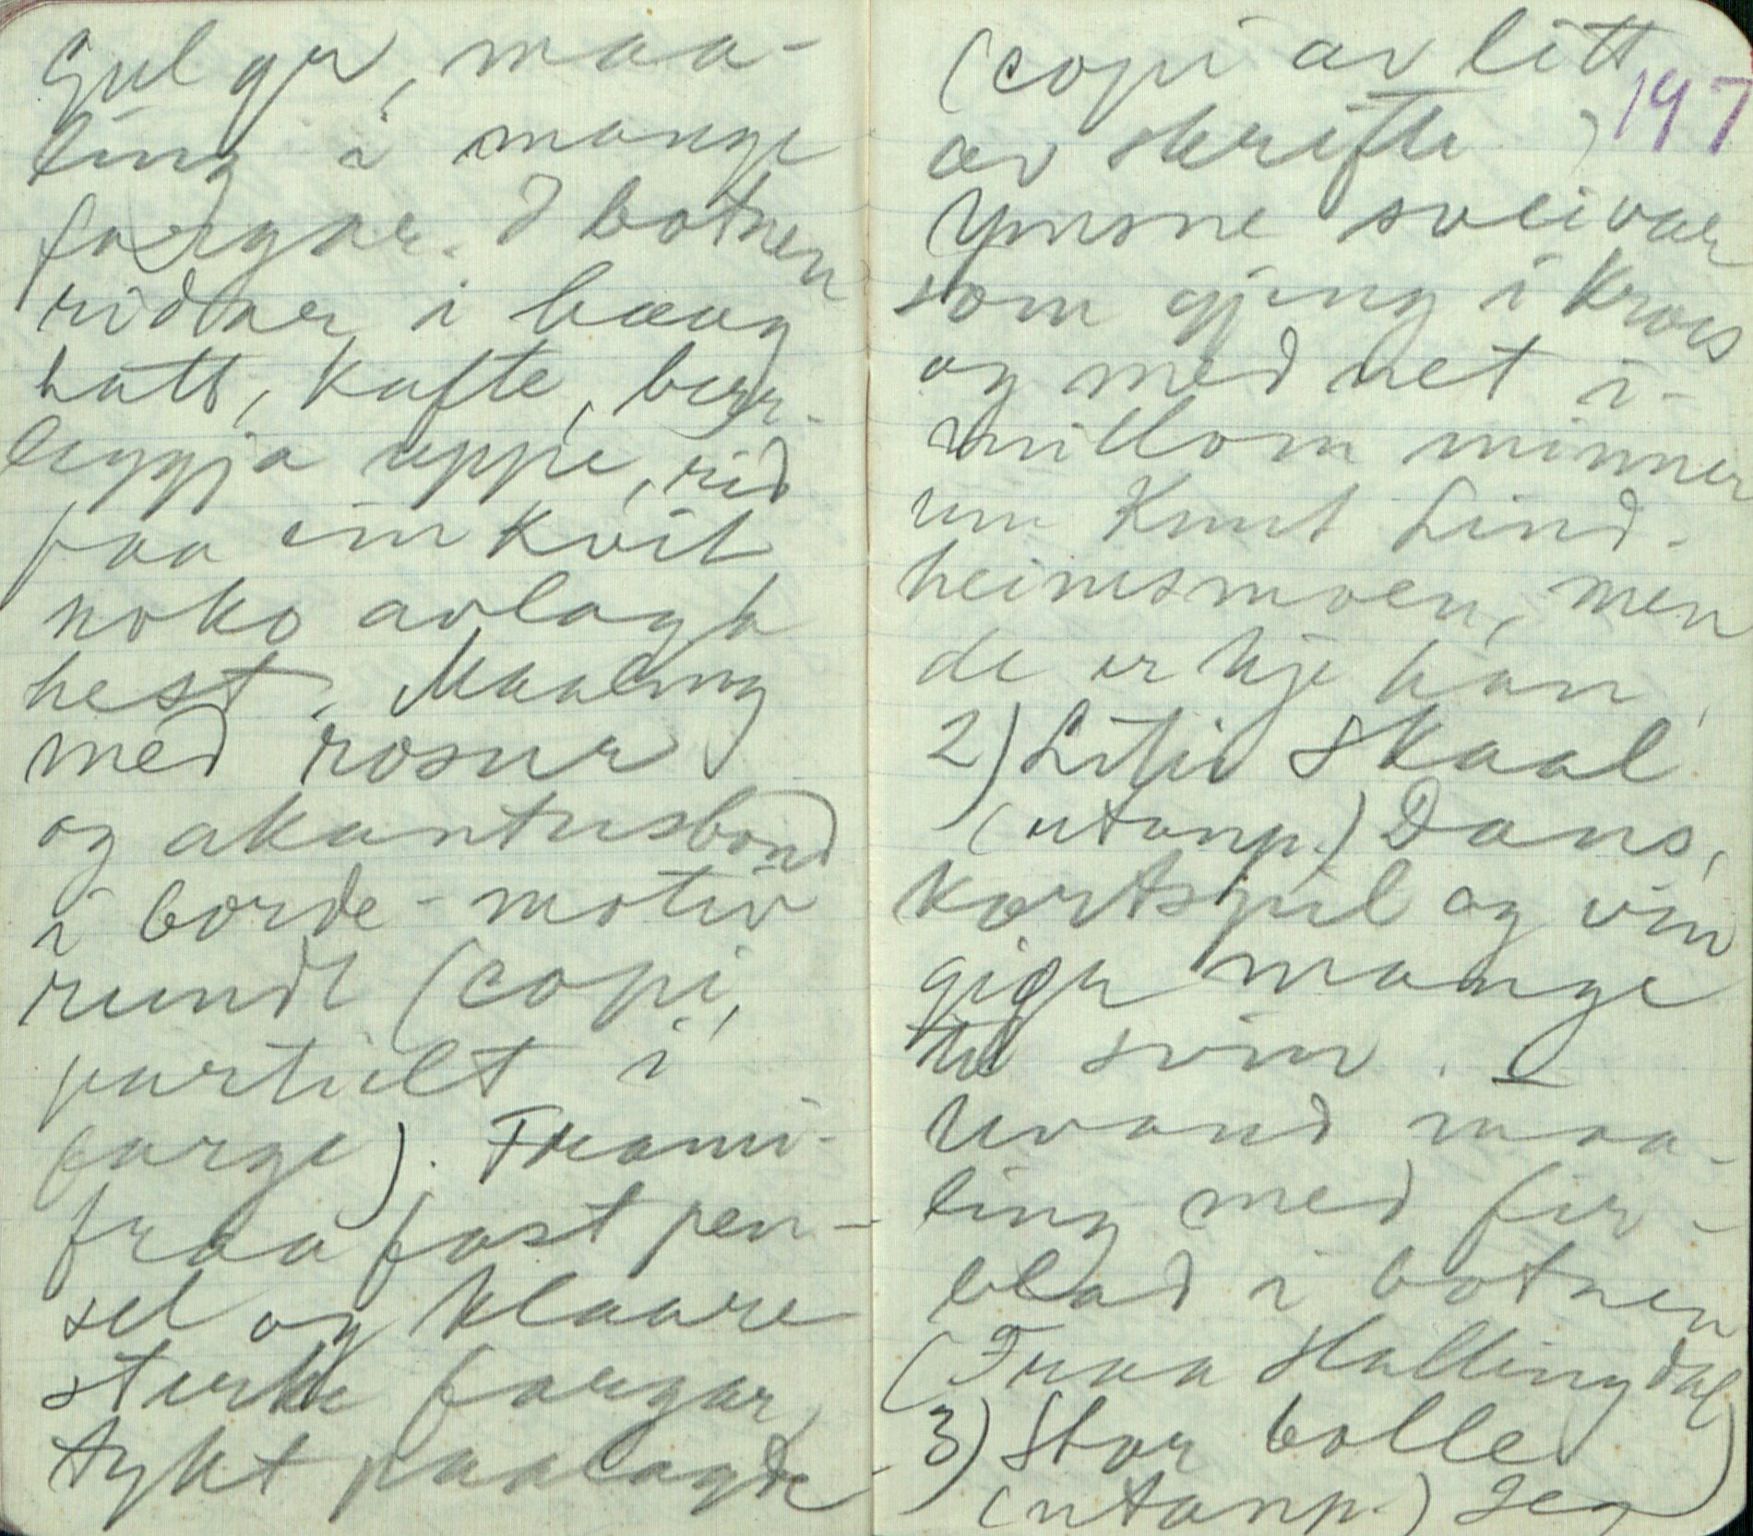 Gul gr, maa-
ling i mange
fargar. I botnen
ridar i haag
hatt, kufte,
leggja uppe, rid
paa ein kvit
noko avlagh
hest. Maaling
med rosur
og akantusbord
i borde-motiv
rundt (copi,
partielt i
farge). Frami-
fraa fast pen-
sel og klaare
sterke fargar,
tykt paalagde
(copi av litt
av skrifti)
197
Ymsne sveivar
som gjeng i kross
og med net i-
millom minner
um Knut Lind-
heimsmoen, men
de er kje han,
2) Liti skaal
(utanp.) Dans,
kortspil og vin
gigr mange
til svin. -
Uvand maa-
ling med fir-
blad i botnen
(Fraa Hallingdal)
3) Stor bolle
(utanp.) Jeg